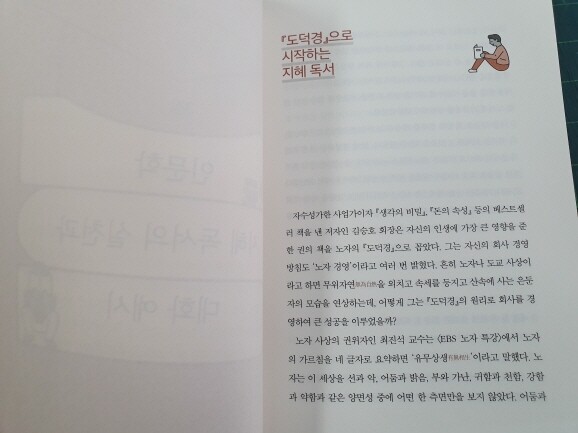 『도덕경』으로
시작하는
지혜 독서
자수성가한 사업가이자 『생각의 비밀』, 『돈의 속성』 등의 베스트셀
러 책을 낸 저자인 김승호 회장은 자신의 인생에 가장 큰 영향을 준
한 권의 책을 노자의 『도덕경』으로 꼽았다. 그는 자신의 회사 경영
방침도 '노자 경영'이라고 여러 번 밝혔다. 흔히 노자나 도교 사상이
라고 하면 무위자연無爲自然을 외치고 속세를 등지고 산속에 사는 은둔
자의 모습을 연상하는데, 어떻게 그는 『도덕경』의 원리로 회사를 경
영하여 큰 성공을 이루었을까?
노자 사상의 권위자인 최진석 교수는 〈EBS 노자 특강〉에서 노자
의 가르침을 네 글자로 요약하면 '유무상생有無相生'이라고 말했다. 노
자는 이 세상을 선과 악, 어둠과 밝음, 부와 가난, 귀함과 천함, 강함
과 약함과 같은 양면성 중에 어떤 한 측면만을 보지 않았다. 어둠과